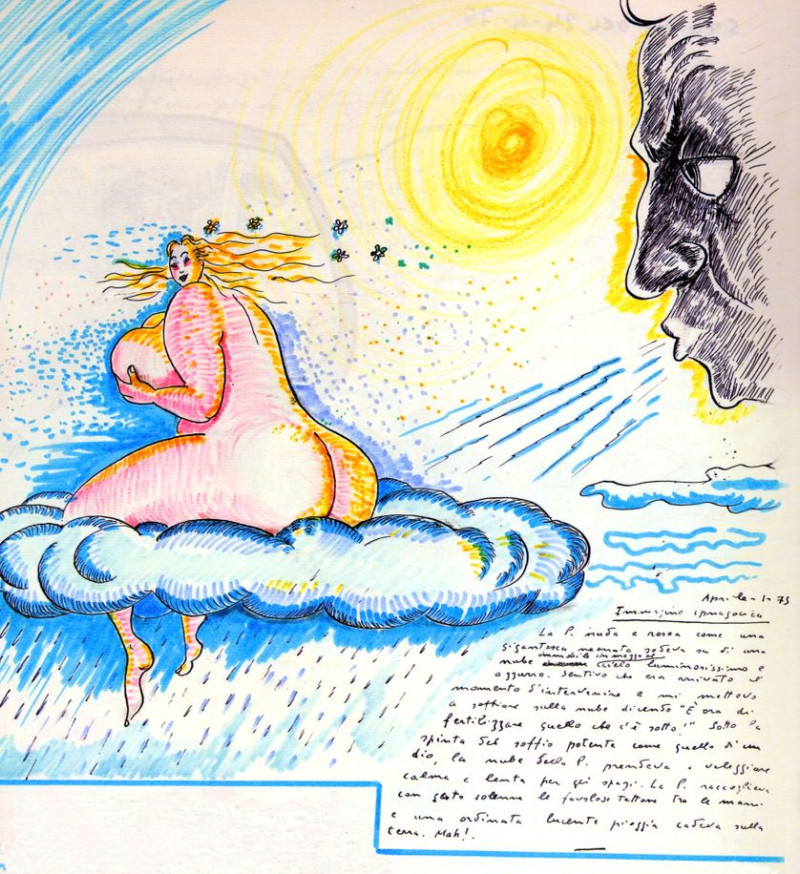 Aprile-1-75
Immagine ipnagogica
La P. nuda e rosea come una
gigantesca neonata sedeva su di una
nube immobile in mezzo al cielo luminosissimo e
azzurro. Sentivo che era arrivato il
momento d'intervenire e mi mettevo
a soffiare sulla nube dicendo "È ora di
fertilizzare quello che c'è sotto!" Sotto la
spinta del soffio potente come quello di un
dio, la nube della P. prendeva a veleggiare
calma e lenta per gli spazi. La P. raccoglieva
con gesto solenne le favolose tettone tra le mani
e una ordinata lucente pioggia cadeva sulla
terra. Mah!.